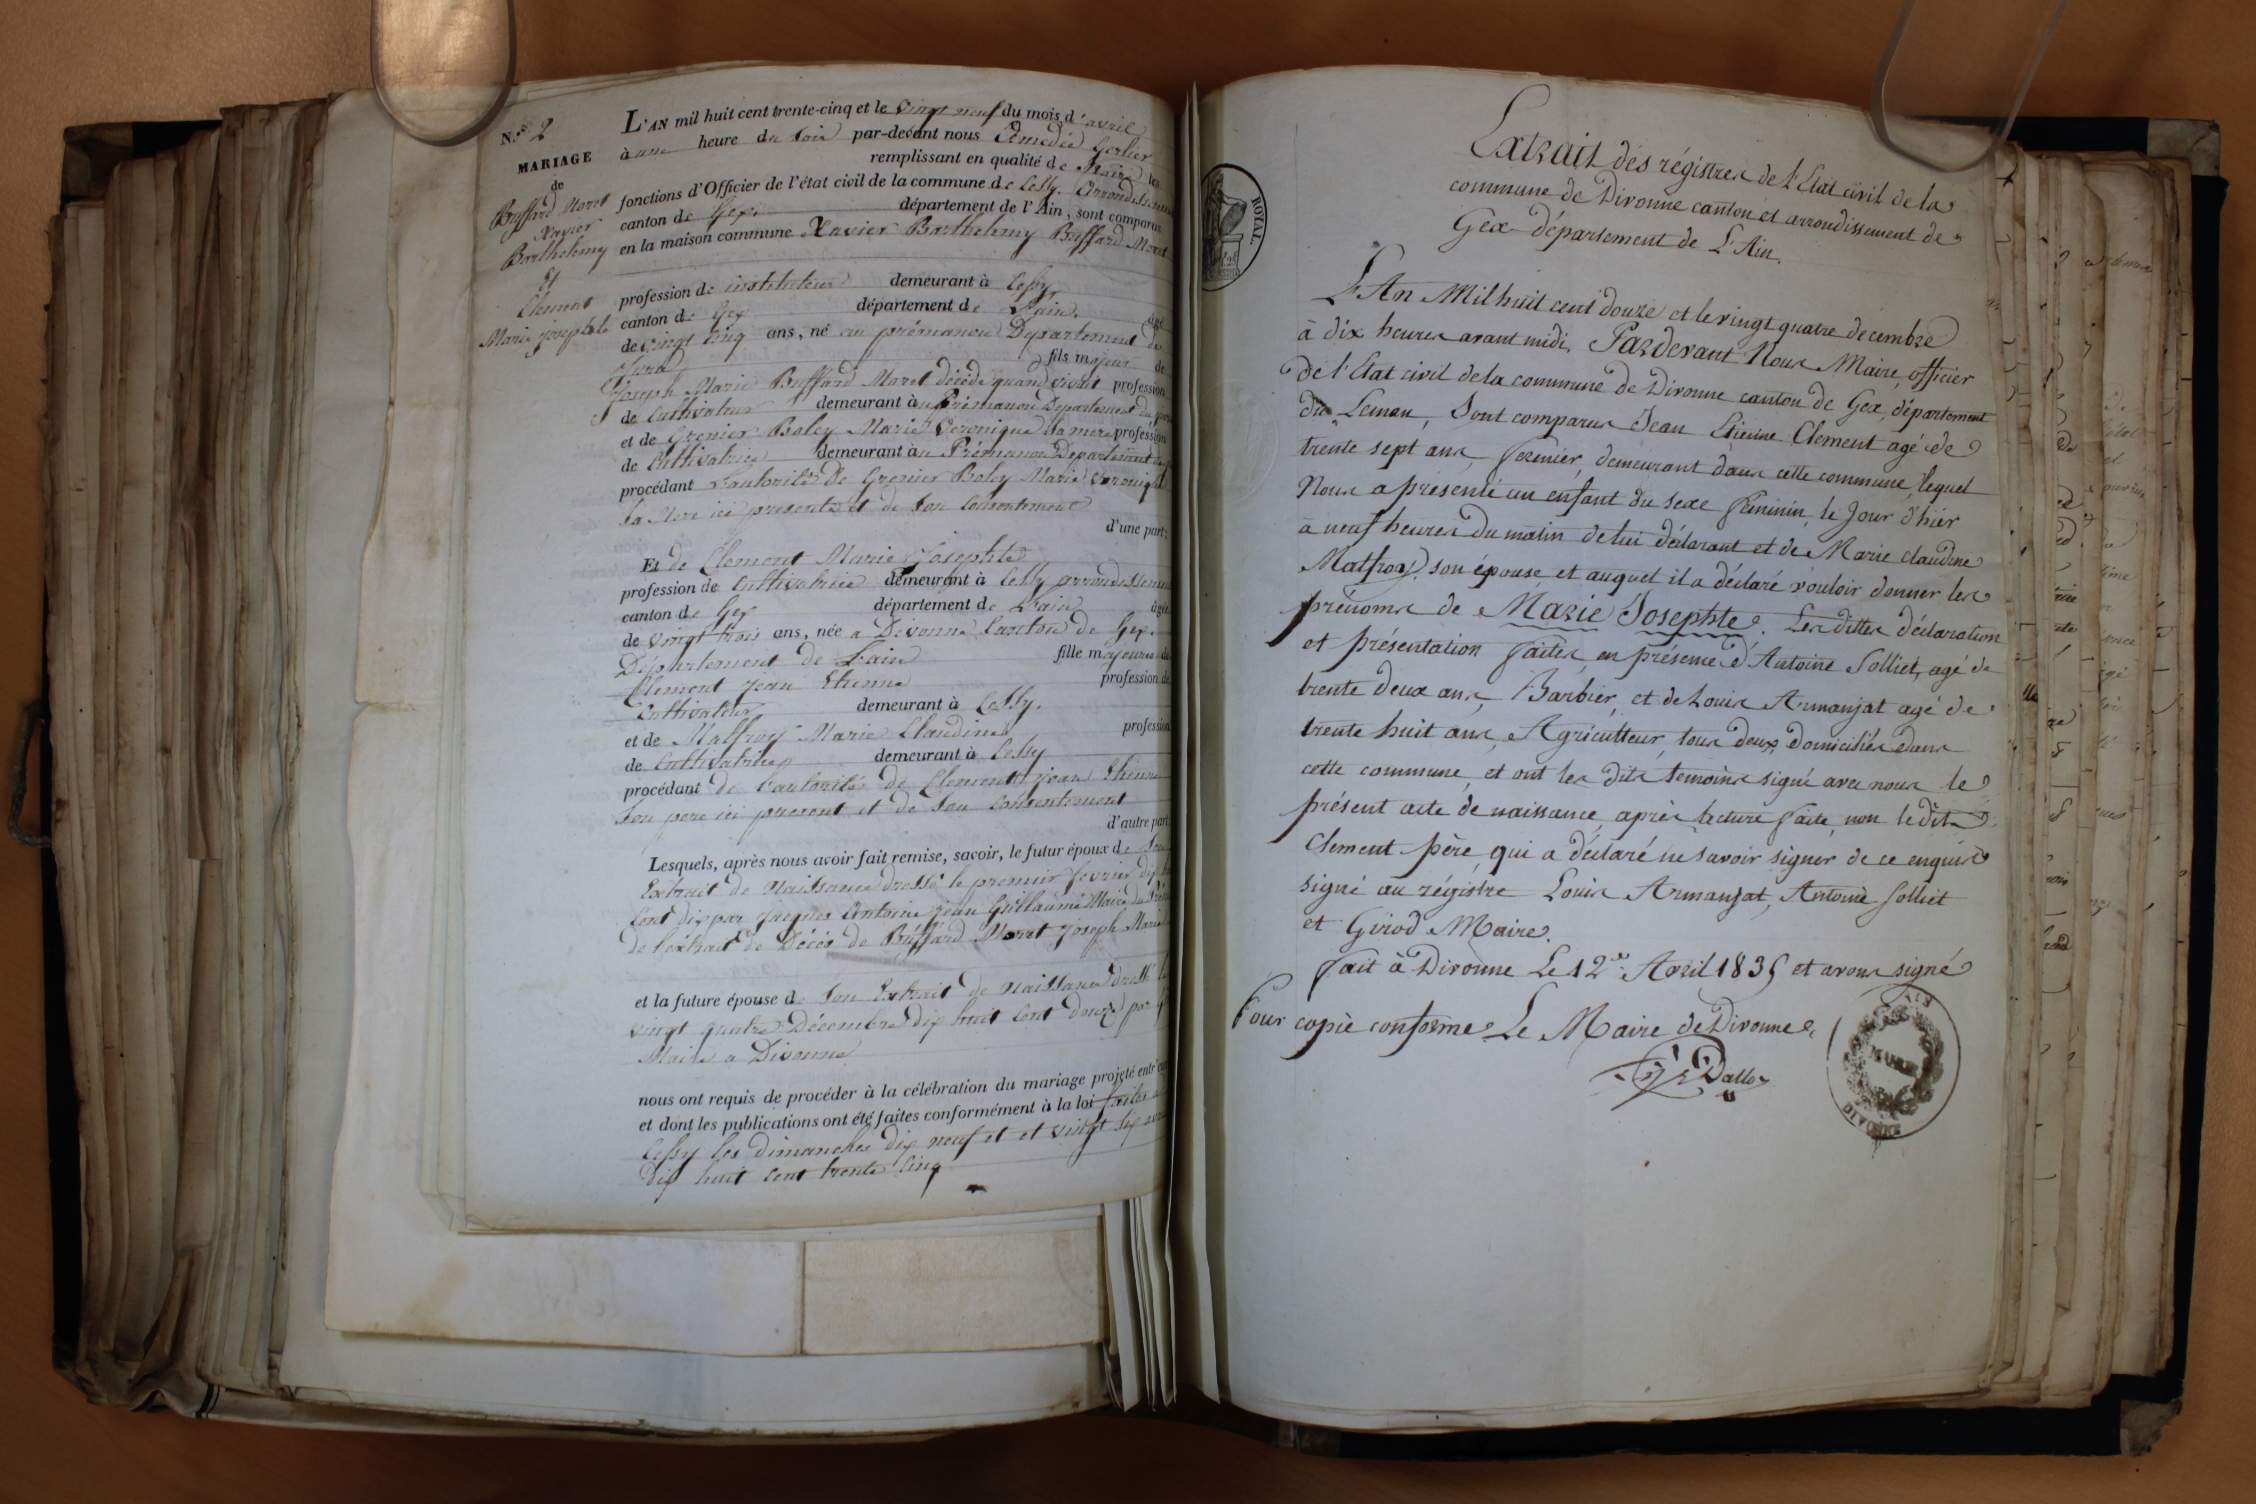 N.° 2
MARIAGE
de
Buffard Moret
Xavier
Barthelemy
Et
Clement
Marie josephte
L'AN mil huit cent trente-cinq et le vingt neuf du mois d'avril
à une heure du soir par-devant nous Gerlier
remplissant en qualité de Maire les
fonctions d'Officier de l'état civil de la commune de Cessy. Arrondissement
canton de Gex. département de l'Ain, sont comparus
en la maison commune Xavier Barthelemy Buffard Moret
profession de instituteur demeurant à Cessy,
canton de Gex département de L'ain. âgé
de vingt cinq ans, né au prémanon Departement du
Jura fils majeur de
Joseph Marie Buffard Moret décédé quand vivait profession
de Cultivateur demeurant à Prémanon Departement du
et de Grenier Boley Marie Veronique sa mere profession
de Cultivatrice demeurant au Prémanon Departement
procédant L'autorité de Grenier Boley Marie Veronique
sa Mere ici presente et de son Consentement
d'une part;
Et de Clement Marie Josephte
profession de Cultivatrice demeurant à Cessy arrondissement
canton de Gex département de L'ain âgée
de vingt trois ans, née a Divonne Canton de Gex.
Département de L'ain fille majeure de
Clement jean Etienne profession de
Cultivateur demeurant à Cessy.
et de Malfroy Marie Claudine profession
de Cultivatrice demeurant à Cessy
procédant de L'autorité de Clement jean Etienne
son pere ici present et de son Consentement
d'autre part.
Lesquels, après nous avoir fait remise, savoir, le futur époux de son
Extrait de Naissance dressé le premier fevrier dix huit
Cent dix par jacques Antoine jean Guillaume Maire du
de l'extrait de Décés de Buffard Moret joseph Marie
et la future épouse de son Extrait de Naissance dressé le
vingt quatre Décembre dix huit Cent douze par
Maire a Divonne
nous ont requis de procéder à la célébration du mariage projeté entre eux
et dont les publications ont été faites conformément à la loi faites a
Cessy les dimanches dix neuf et et vingt six
dix huit Cent trente Cinq
ROYAL.
Extrait des régistres de l'Etat civil de la
commune de Divonne canton et arrondissement de
Gex département de L'Ain.
L'An Mil huit cent douze et le vingt quatre decembre
à dix heures avant midi, Pardevant Nous Maire, officier
de l'Etat civil de la commune de Divonne canton de Gex, département
du Leman, Sont comparus Jean Etienne Clement agé de
trente sept ans, fermier, demeurant dans cette commune, lequel
Nous a présenté un enfant du sexe féminin, le jour d'hier
à neuf heures du matin de lui déclarant et de Marie claudine
Malfroy, son épouse, et auquel il a déclaré vouloir donner les
prénoms de Marie Josephte. Les dittes déclaration
et présentation faites, en présence d'Antoine Solliet, agé de
trente deux ans, Barbier, et de Louis Armanjat agé de
trente huit ans, Agriculteur, tous deux domiciliés dans
cette commune, et ont les dits temoins signé avec nous le
présent acte de naissance, après lecture faite, non le dit
Clement père, qui a déclaré ne savoir signer de ce enquis
signé au régistre Louis Armanjat, Antoine Solliet
et Girod Maire.
fait à Divonne Le 12.e Avril 1835 et avons signé
Pour copie conforme Le Maire de Divonne
MAIRIE
DIVONNE
AIN